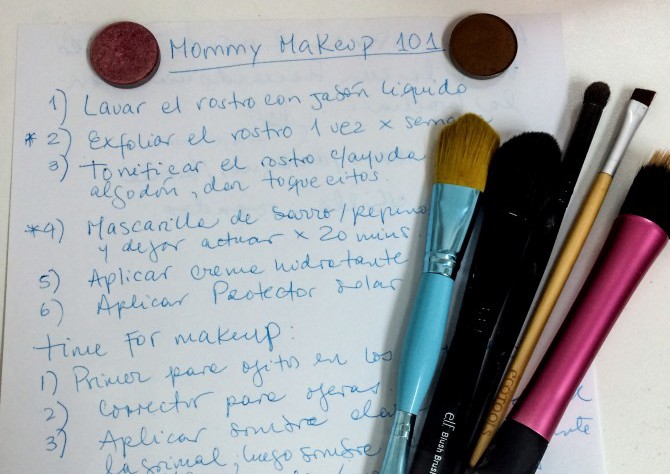 Mommy Makeup 101
1) Lavar el rostro con jabón líquido
* 2) Exfoliar el rostro 1 vez x
3) Tonificar el rostro c/ayuda
algodón, dar toquecitos.
*4) Mascarilla de /pepino
y dejar actuar x 20 mins
5) Aplicar crema hidratante
6) Aplicar Protector solar
Time For makeup:
1) Primer para ojitos en los
2) Corrector para ojeras.
3) Aplicar sombra
lagrimal, luego sombra
e.l.f. Blush Brush
ECOTOOLS